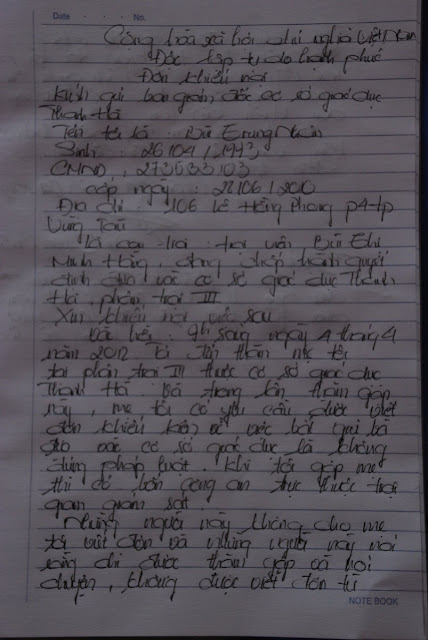 Date No.
Cộng hòa xã hội chủ nghĩa Việt Nam
Độc lập tự do hạnh phúc
Đơn khiếu nại
Kính gửi ban giám đốc cơ sở giáo dục
Thanh Hà
Tên tôi là : Bùi Trung Nhân
Sinh : 26/04/1973
CMND : 273533103
cấp ngày : 22/06/2010
Địa chỉ 106 Lê Hồng Phong p4-tp
Vũng Tàu
là con trai trại viên, Bùi Thị
Minh Hằng, đang chấp hành quyết
định đưa vào cơ sở giáo dục Thanh
Hà, phân trại III
Xin khiếu nại việc sau
vào hồi : 9h sáng ngày 4 tháng 4
năm 2012 Tôi đến thăm mẹ tôi
tại phân trại III thuộc cơ sở giáo dục
Thanh Hà. Và trong lần thăm gặp
này, mẹ tôi có yêu cầu được viết
đơn khiếu kiện về việc bắt giữ bà
đưa vào cơ sở giáo dục là không
đúng pháp luật. khi tôi gặp mẹ
thì có bốn công an trực thuộc trại
giam giám sát.
Những người này không cho mẹ
tôi viết đơn và những người này nói
rằng chỉ được thăm gặp và nói
chuyện, không được viết đơn từ
NOTE BOOK